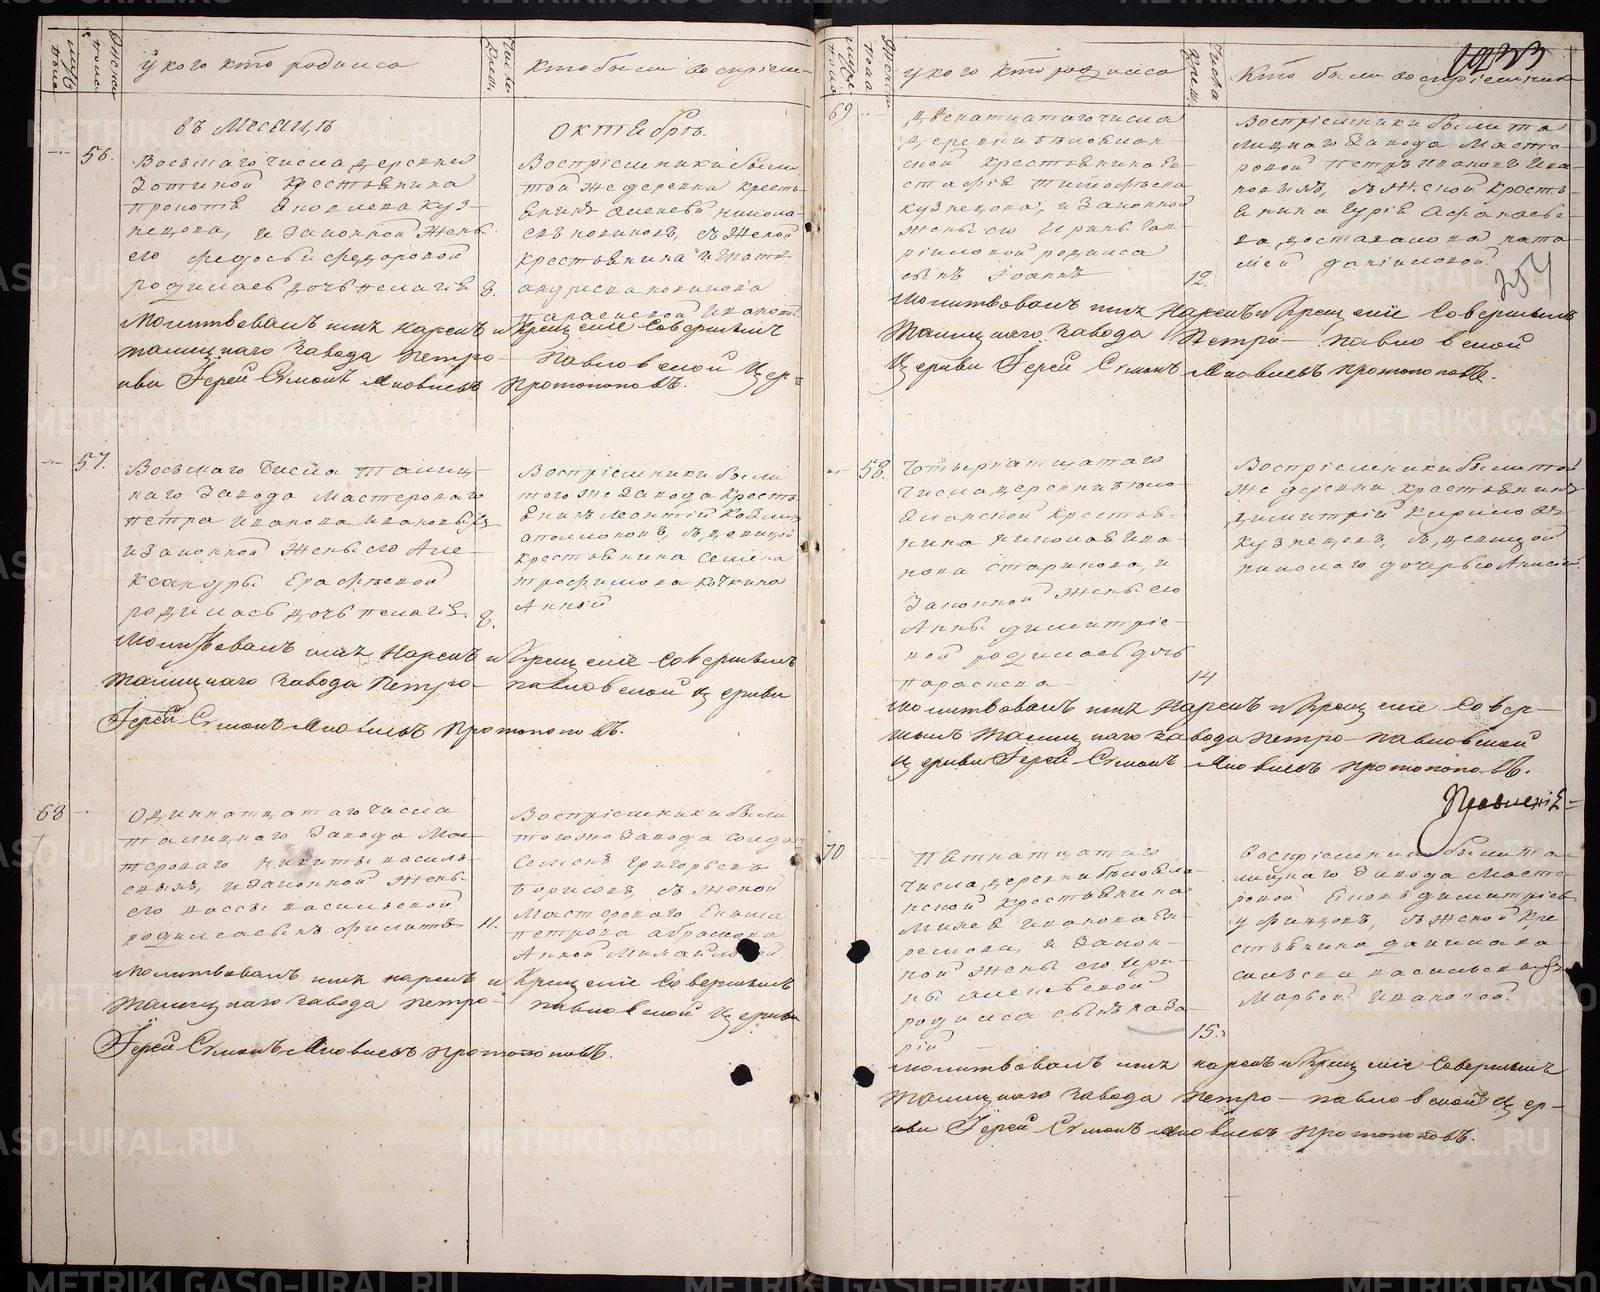 у кого кто родился
Кто были воспріем-
въ Месяцѣ
Октябрѣ.
56.
Восьмаго числа деревни
Зотиной крестьянина
Прокопія Яковлева Куз-
нецова, и Законной жены
его Федосьи Федоровой
родилась дочь Пелагія 8.
Воспріемники были
той же деревни кресть-
янинъ Алексей Никола-
евъ Новиковъ, съ женой
крестьянина Игнатія
Андреева Новикова
Параскевой Ивановой
Молитвовалъ имя нарекъ и Крещеніе Совершилъ
Талицкаго Завода Петро-Павловской Цер-
кви Іерей Симонъ Яковлевъ Протопоповъ.
57.
Восьмаго Числа Талиц-
каго Завода Мастероваго
Петра Иванова Ивановыхъ
и Законной жены его Але-
ксандры Ерофѣевой
родилась дочь Пелагія. 8.
Воспріемники были
того же Завода кресть-
янинъ Леонтій Козмин
Аполлоновъ, съ девицей
крестьянина Семена
Трофимова Кочкина
Анной
Молитвовалъ имя Нарекъ и Крещеніе Совершилъ
Талицкаго Завода Петро-Павловской Церкви
Іерей Симонъ Яковлевъ Протопоповъ.
68
Одиннатцатаго Числа
Талицкаго Завода Мас-
тероваго Никиты Василь-
евыхъ, и Законной жены
его Вассы Васильевой
родился сынъ Филиппъ 11.
Воспріемники были
того же Завода Солда
Семенъ Григорьевъ
Борисовъ, съ женой
Мастероваго Екима
Петрова Абрамова
Анной Михайловой
Молитвовалъ имя нарекъ и Крещеніе Совершилъ
Талицкаго Завода Петро-Павловской Церкви
Іерей Симонъ Яковлевъ Протопоповъ.
у кого кто родился
Кто были воспріемники
254
69
Двенатцатаго числа
Деревни Бѣлоелан-
ской крестьянина Ев-
стафія Тимофѣева
Кузнецова, и Законной
жены его Ирины Гав-
ріиловой родился
сынъ Іоаннъ 12.
Воспріемники были та-
лицкаго Завода Масте-
ровой Петръ Ивановъ Ива-
новыхъ, съ женой кресть-
янина Гурія Афанасье-
ва Достовалова Ната-
ліей Даніиловой
Молитвовалъ имя Нарекъ и Крещеніе Совершилъ
Талицкаго Завода Петро-Павловской
Церкви Іерей Симонъ Яковлевъ Протопоповъ.
58.
Четырнатцатаго
Числа деревни Бѣло-
Еланской Крестья-
нина Николая Ива-
нова Старикова, и
Законной жены его
Анны Димитріе-
вой родилась дочь
Параскева 14
Воспріемники были той
же деревни крестьянинъ
Димитрій Кириловъ
Кузнецовъ, съ девицей
Николаго дочерью Анисіей
Молитвовалъ имя Нарекъ и Крещеніе Совер-
шилъ Талицкаго Завода Петро-Павловской
Церкви Іерей Симонъ Яковлевъ Протопоповъ.
70
Пятнатцатаго
Числа, деревни Бѣлоела-
нской крестьянина
Михея Иванова Еф-
ремова, и Закон-
ной жены его Ири-
ны Алексѣевой
родился сынъ Наза-
рій 15.
Воспріемники были та-
лицкаго Завода Масте-
ровой Яковъ Димитріевъ
Уфинцовъ, съ женой кре-
стьянина Даниила Ва-
сильева Васильевыхъ
Марьей Ивановой.
Молитвовалъ имя нарекъ и Крещеніе Совершилъ
Талицкаго Завода Петро-Павловской Цер-
кви Іерей Симонъ Яковлевъ Протопоповъ.
METRIKI.GASO-URAL.RU